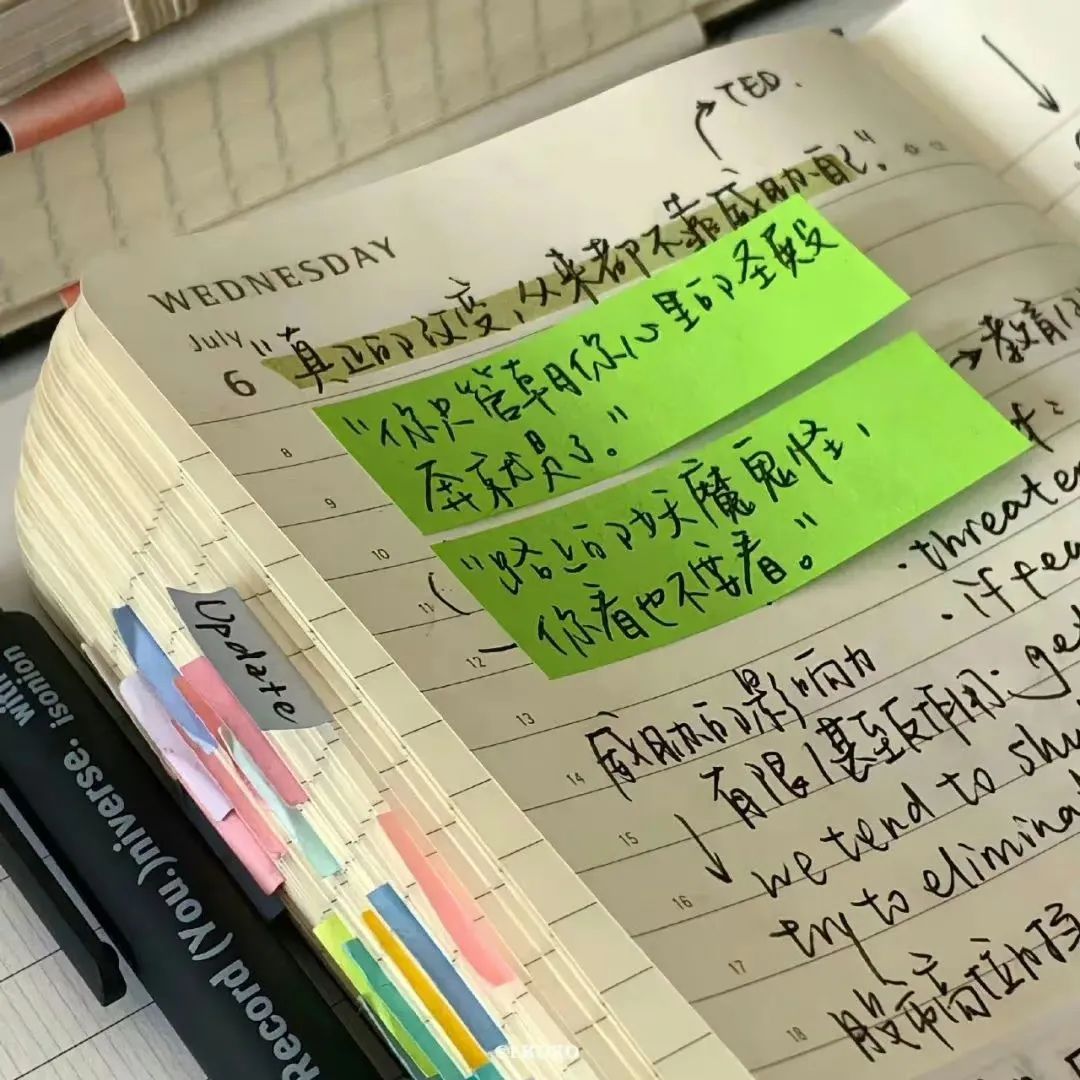 TED.
WEDNESDAY
July
6
"真正的改变,从来都不靠威胁自己"
"你只管朝你心里的圣殿
奔就是了。"
"路上的妖魔鬼怪,
你看也不要看。"
8
9
10
11
12
13
14
15
16
17
18
→教育
·threaten
·if
威胁的影响力
有限/甚至反作用:
we tend to
try to
股市高位时
Update
Record (You.)niverse.
with isonion